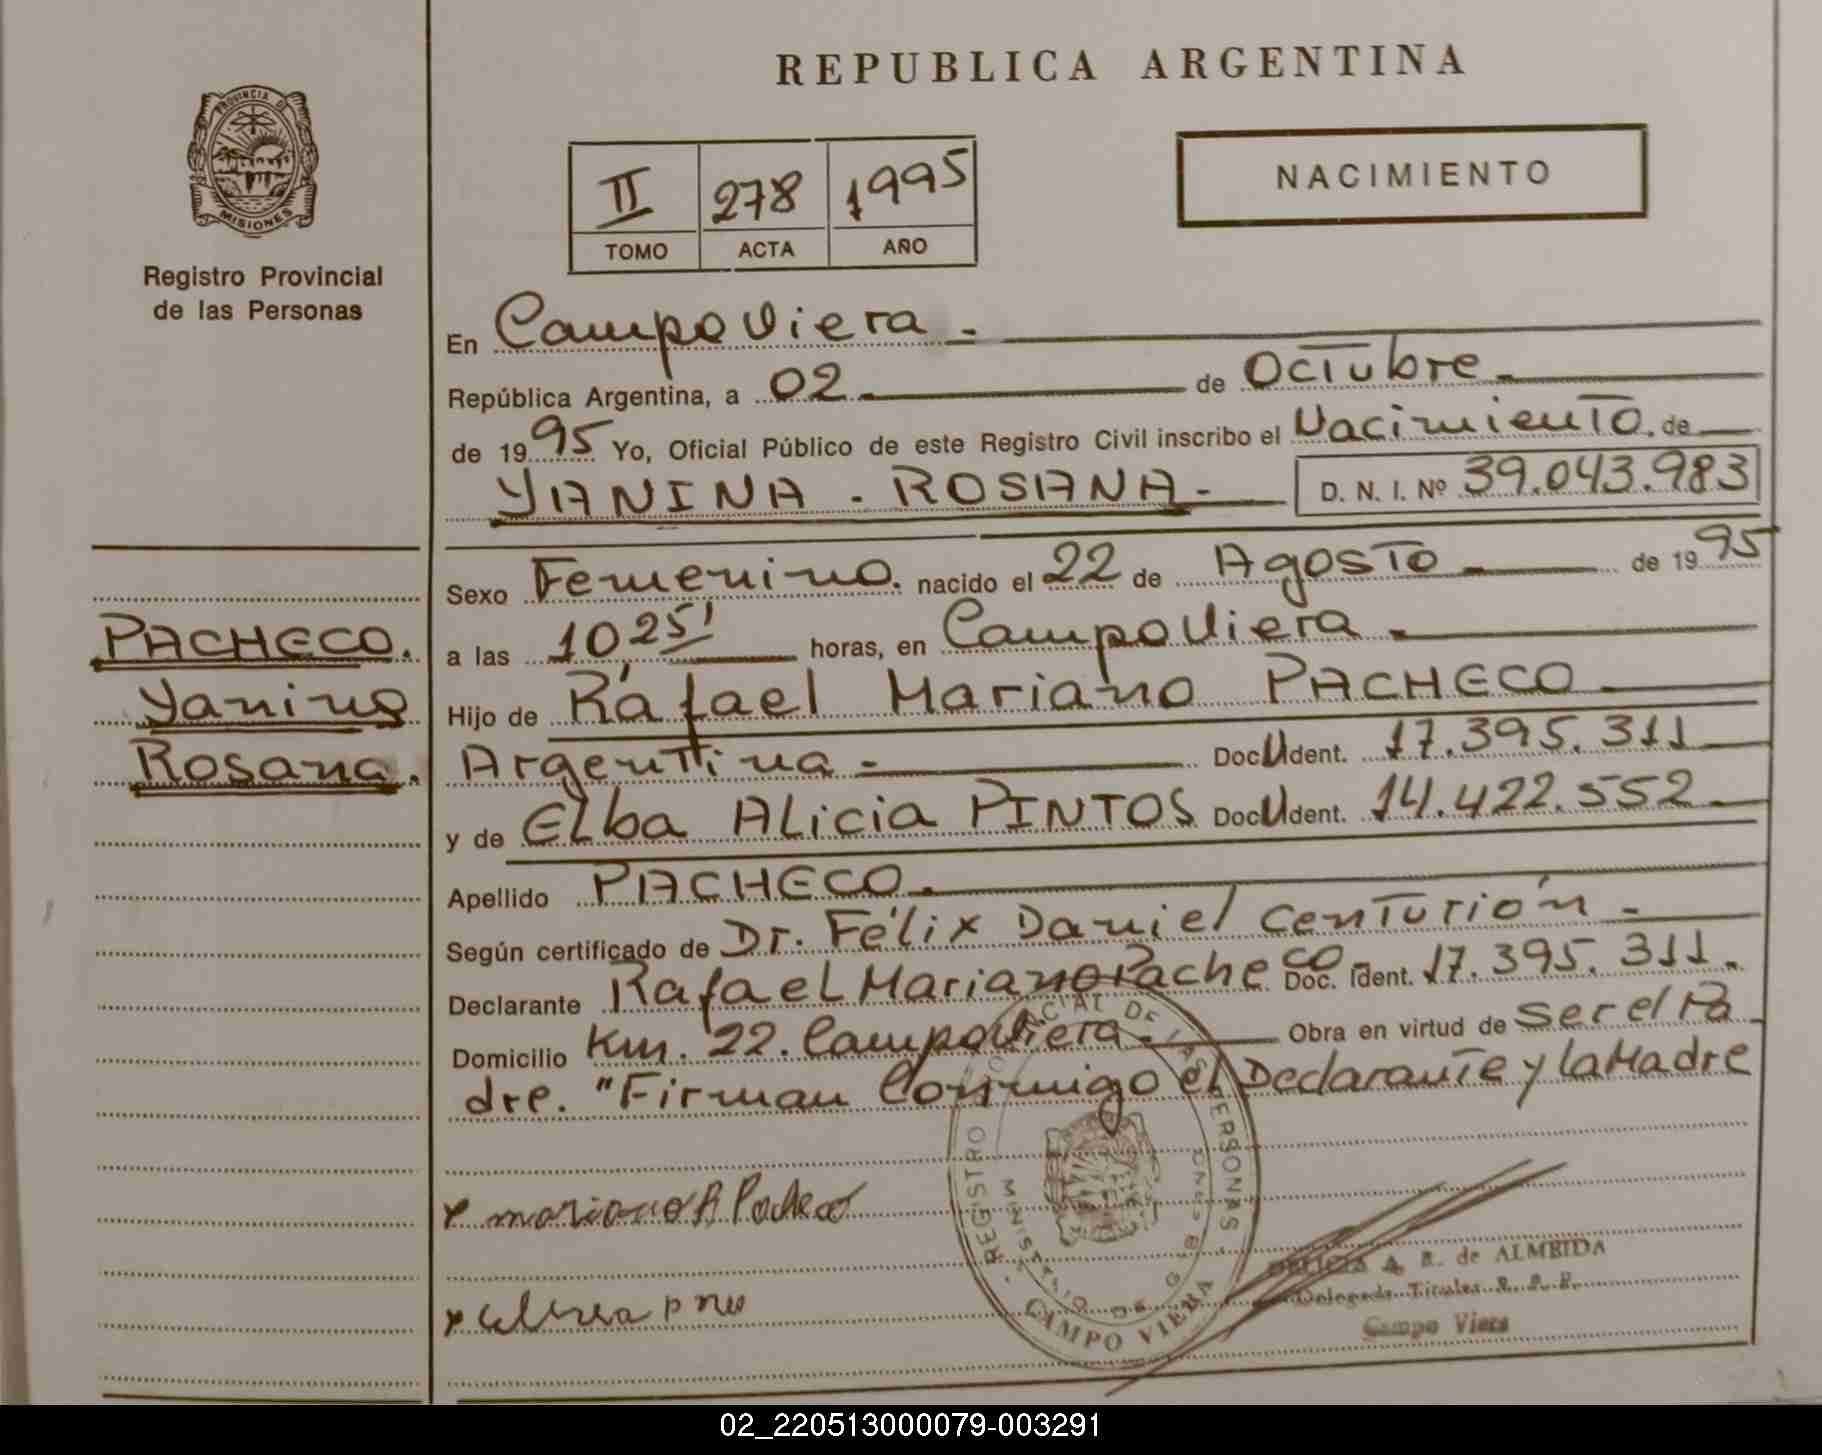 REPUBLICA ARGENTINA
PROVINCIA DE
MISIONES
Registro Provincial
de las Personas
II 278 1995
TOMO ACTA AÑO
NACIMIENTO
En Campo Viera.-
República Argentina, a 02 de Octubre
de 1995 Yo, Oficial Público de este Registro Civil inscribo el Nacimiento de
YANINA - ROSANA- D. N. I. Nº 39.043.983
Sexo Femenino. nacido el 22 de Agosto de 1995
a las 10,25' horas, en Campo Viera.
Hijo de Rafael Mariano PACHECO
Argentina - Doc. Ident. 17.395.311
y de Elba Alicia PINTOS Doc. Ident. 14.422.552
Apellido PACHECO.
Según certificado de Dr. Félix Daniel Centurión -
Declarante Rafael Mariano Pacheco Doc. Ident. 17.395.311.
Domicilio Km. 22. Campo Viera. Obra en virtud de ser el Pa
dre. "Firman Conmigo el Declarante y la Madre
PACHECO.
Yanina
Rosana.
REGISTRO PROVINCIAL DE LAS PERSONAS
MINISTERIO DE GOB
CAMPO VIERA
A. R. de ALMEIDA
Delegada Titular R. P. P.
Campo Viera
02_220513000079-003291